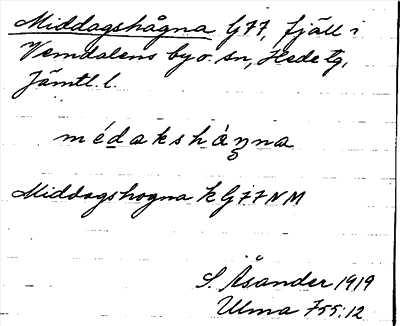 Middagshågna G77, fjäll i
Vemdalens by o. sn, Hede tg,
Jämtl. l.
médakshàŋna
Middagshogna k G77NM
S. Åsander 1919
Ulma 755:12